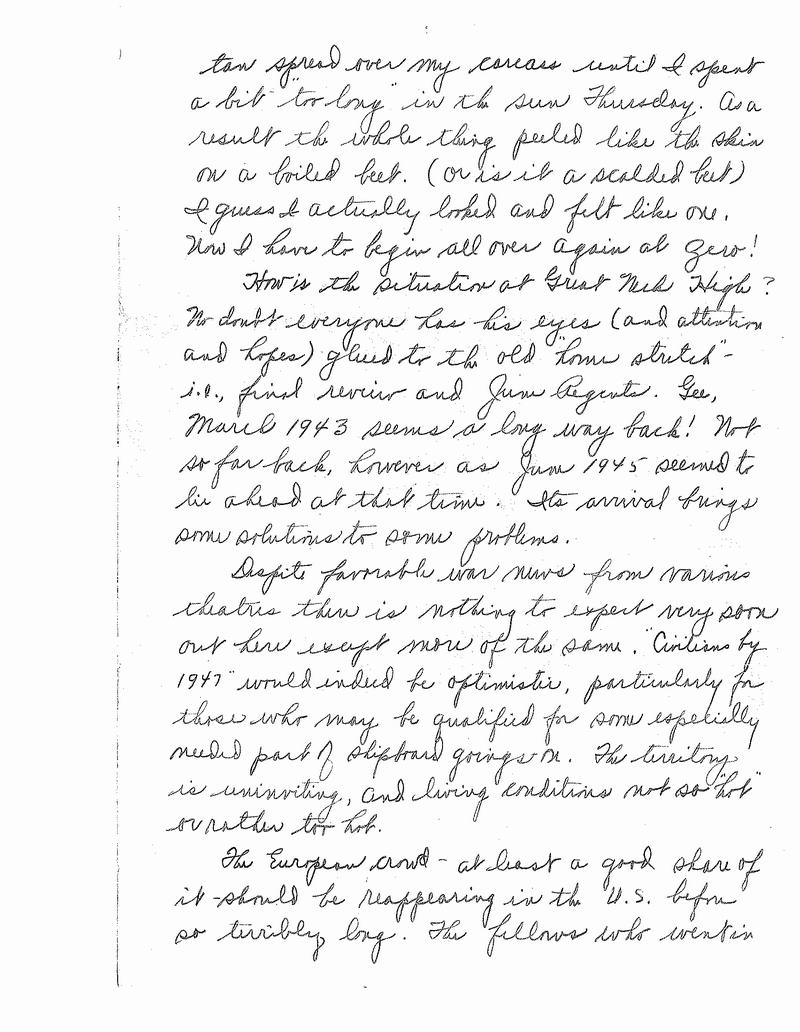 tan spread over my carcass until I spent
a bit "too long" in the sun Thursday. As a
result the whole thing peeled like the skin
on a boiled beet. (or is it a scalded beet)
I guess I actually looked and felt like one.
Now I have to begin all over again at zero!
How is the situation at Great Neck High?
No doubt everyone has his eyes (and attention
and hopes) glued to the old "home stretch" -
i.e., final review and June Regents. Gee,
March 1943 seems a long way back! Not
so far back, however as June 1945 seemed to
lie ahead at that time. Its arrival brings
some solutions to some problems.
Despite favorable war news from various
theatres there is nothing to expect very soon
out here except more of the same. "Civilians by
1947" would indeed be optimistic, particularly for
those who may be qualified for some especially
needed part of shipboard goings-on. The territory
is uninviting, and living conditions not so "hot"
or rather too hot.
The European crowd - at least a good share of
it - should be reappearing in the U.S. before
so terribly long. The fellows who went in